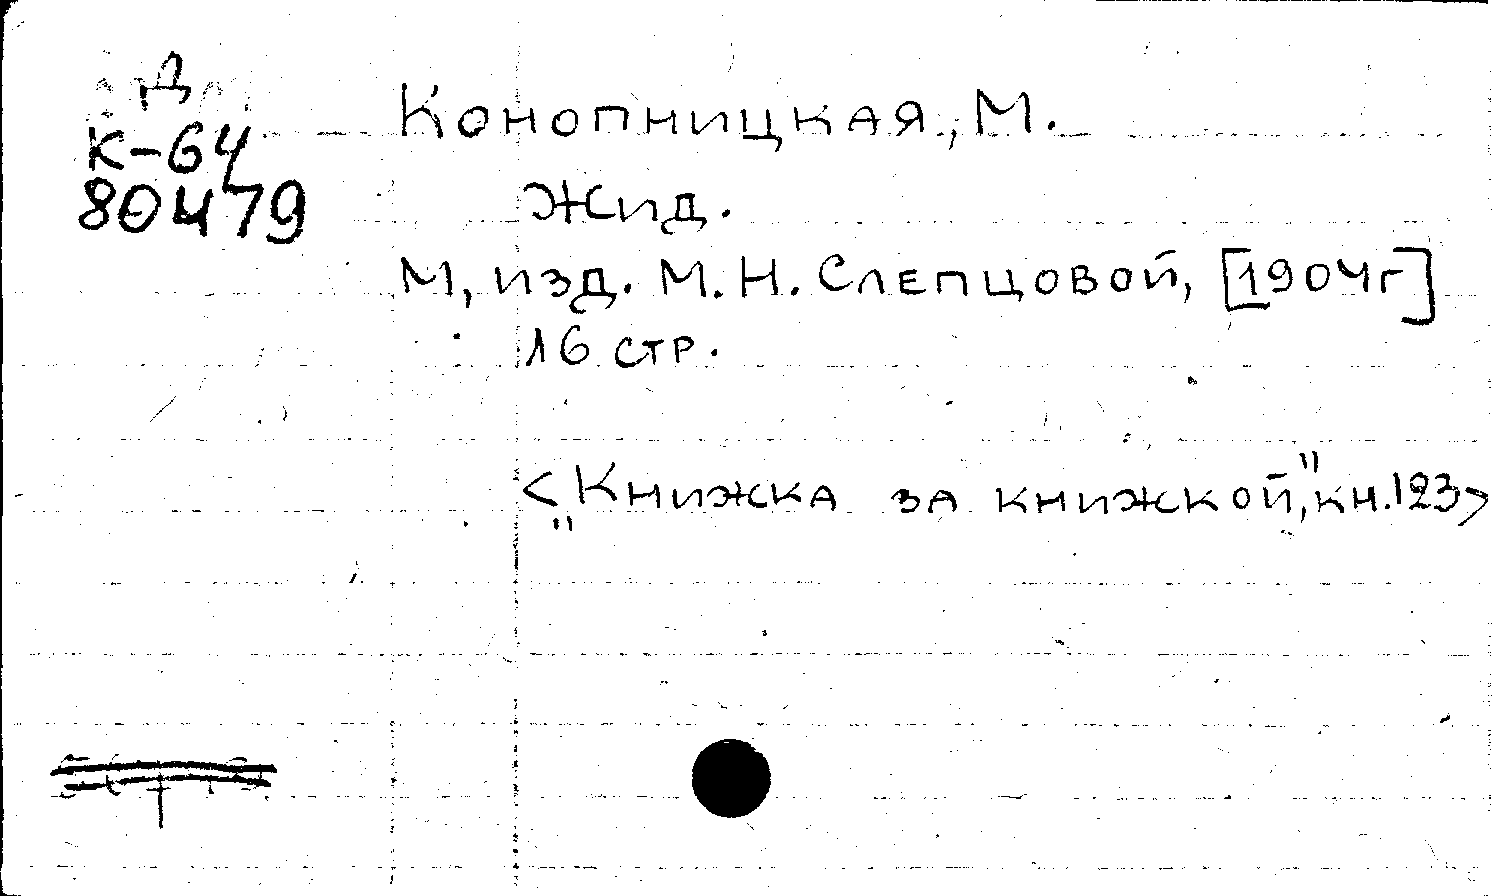 Д
К-64
80479
Конопницкая, М.
Жид.
М, изд. М. Н. Слепцовой, [1904г]
16 стр.
<„Книжка за книжкой", кн. 123>